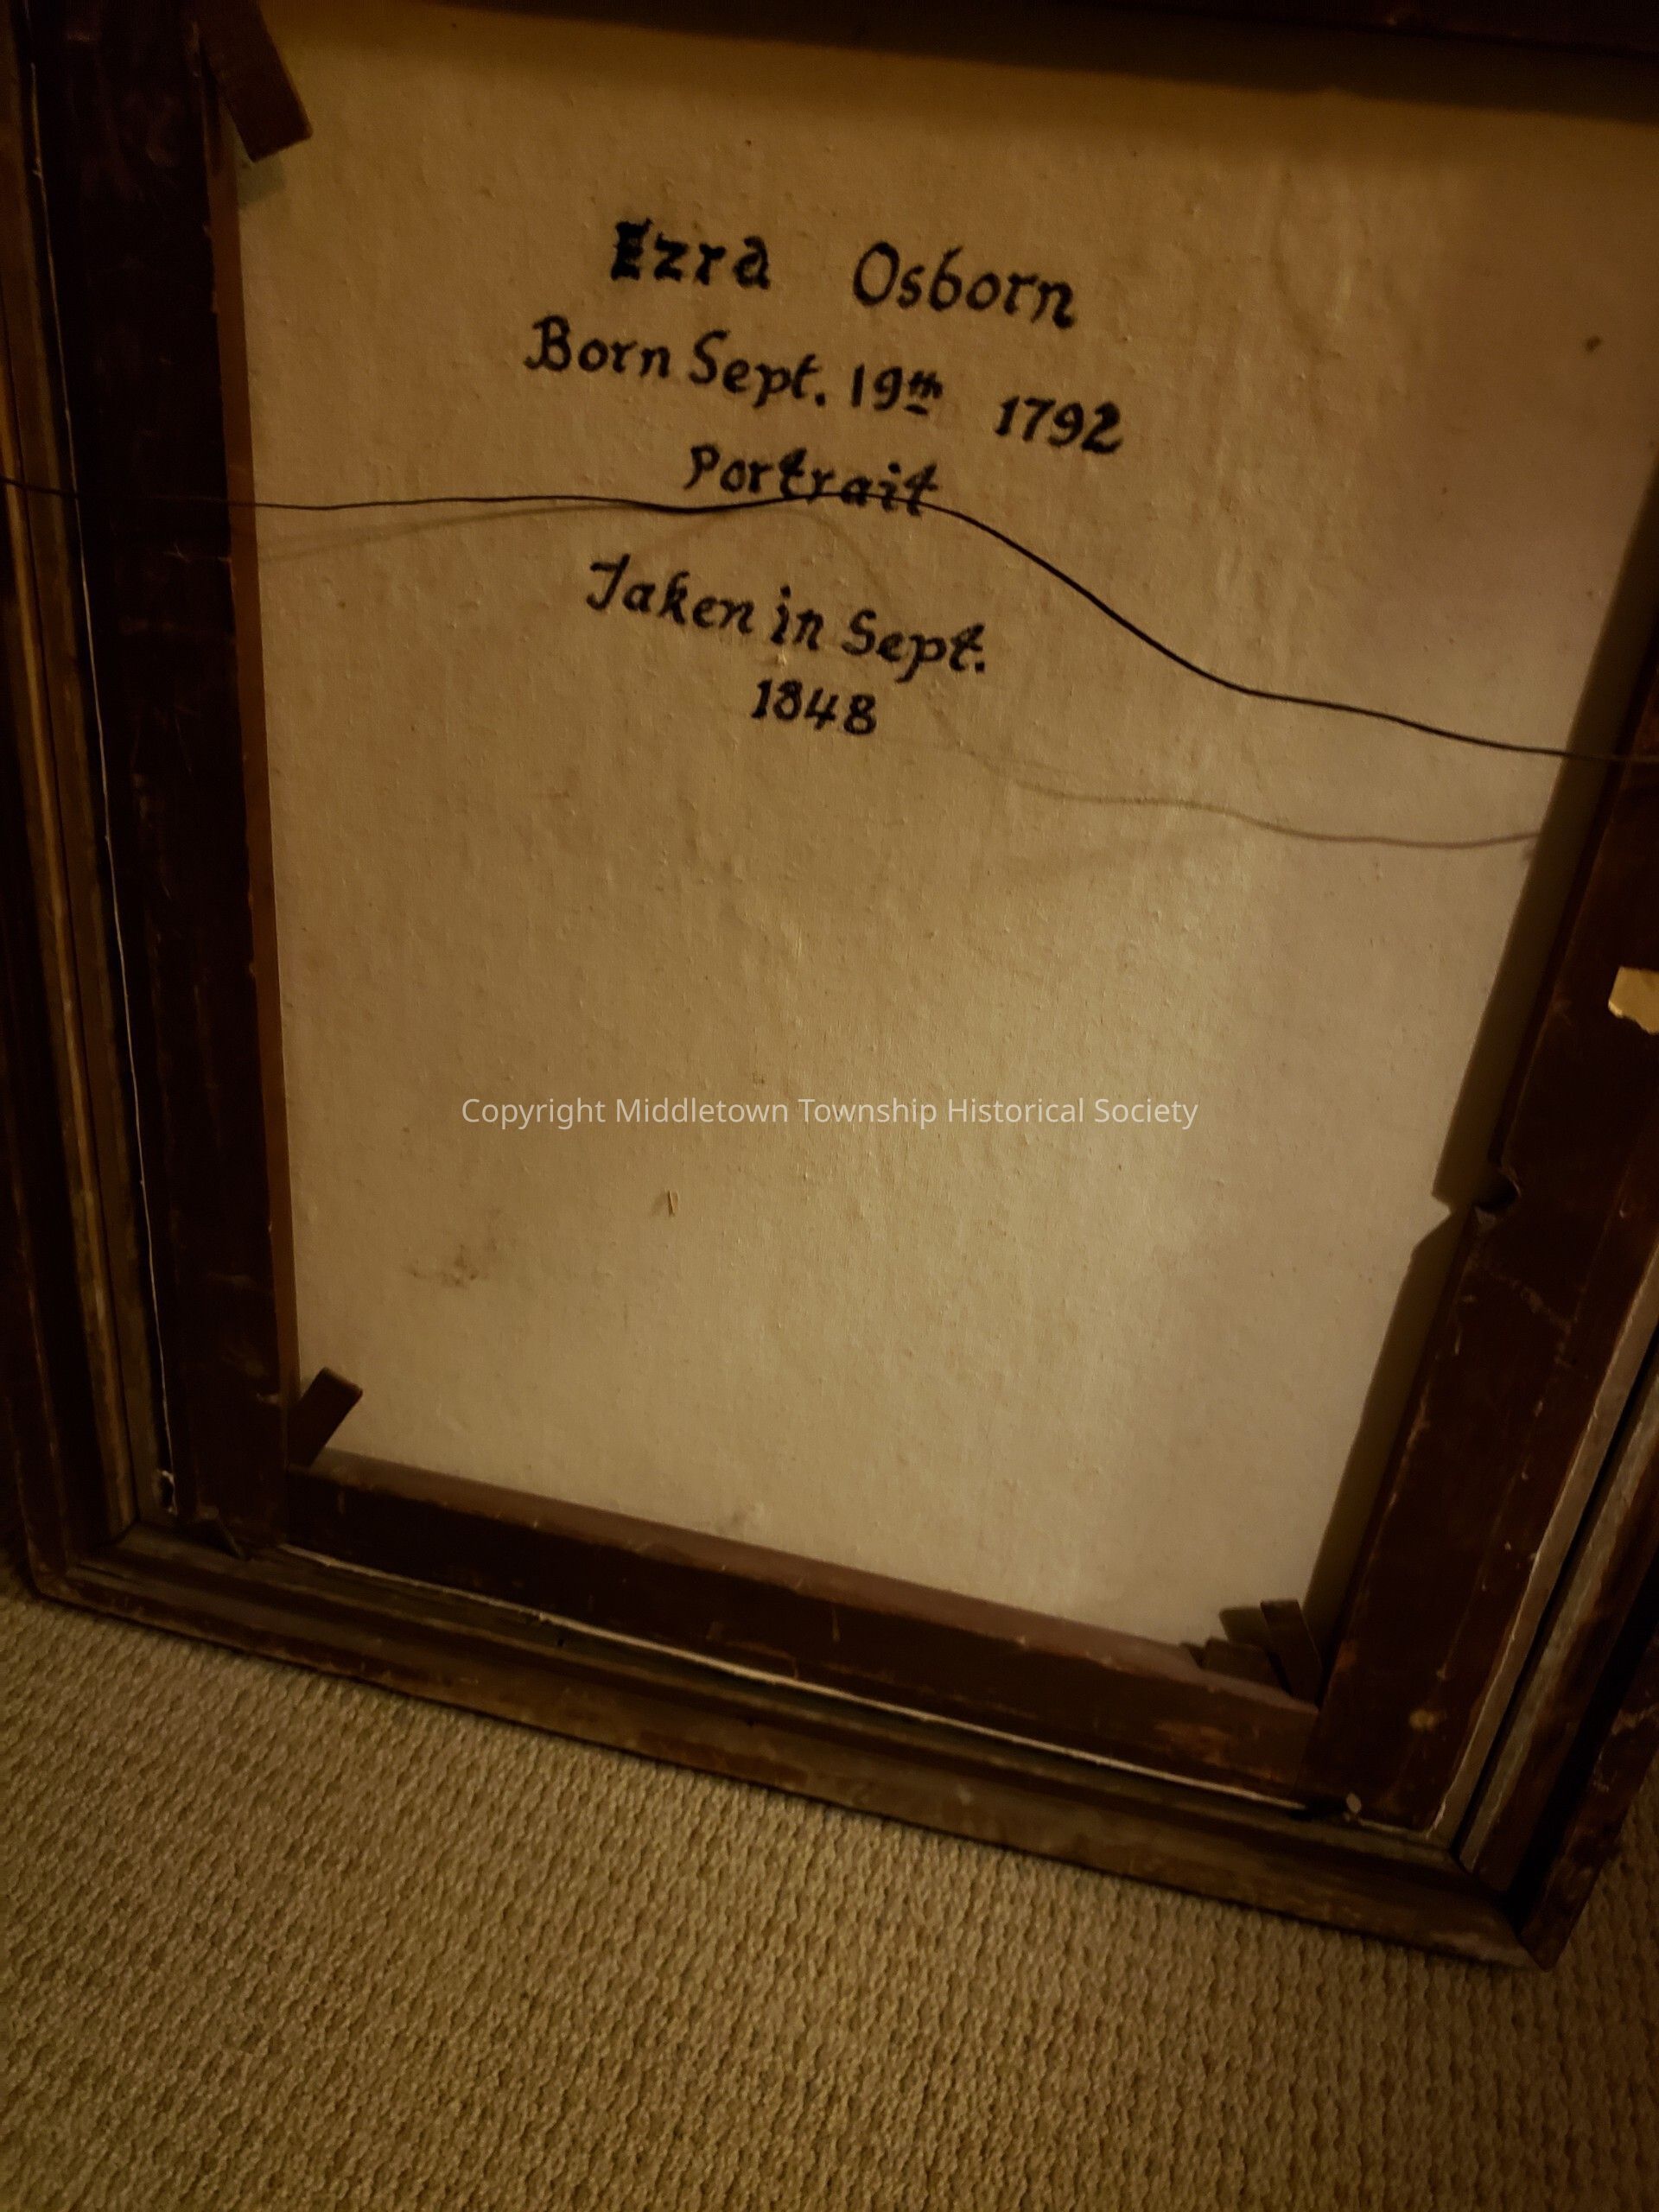 Ezra Osborn
Born Sept. 19th 1792
Portrait
Taken in Sept.
1848
Copyright Middletown Township Historical Society